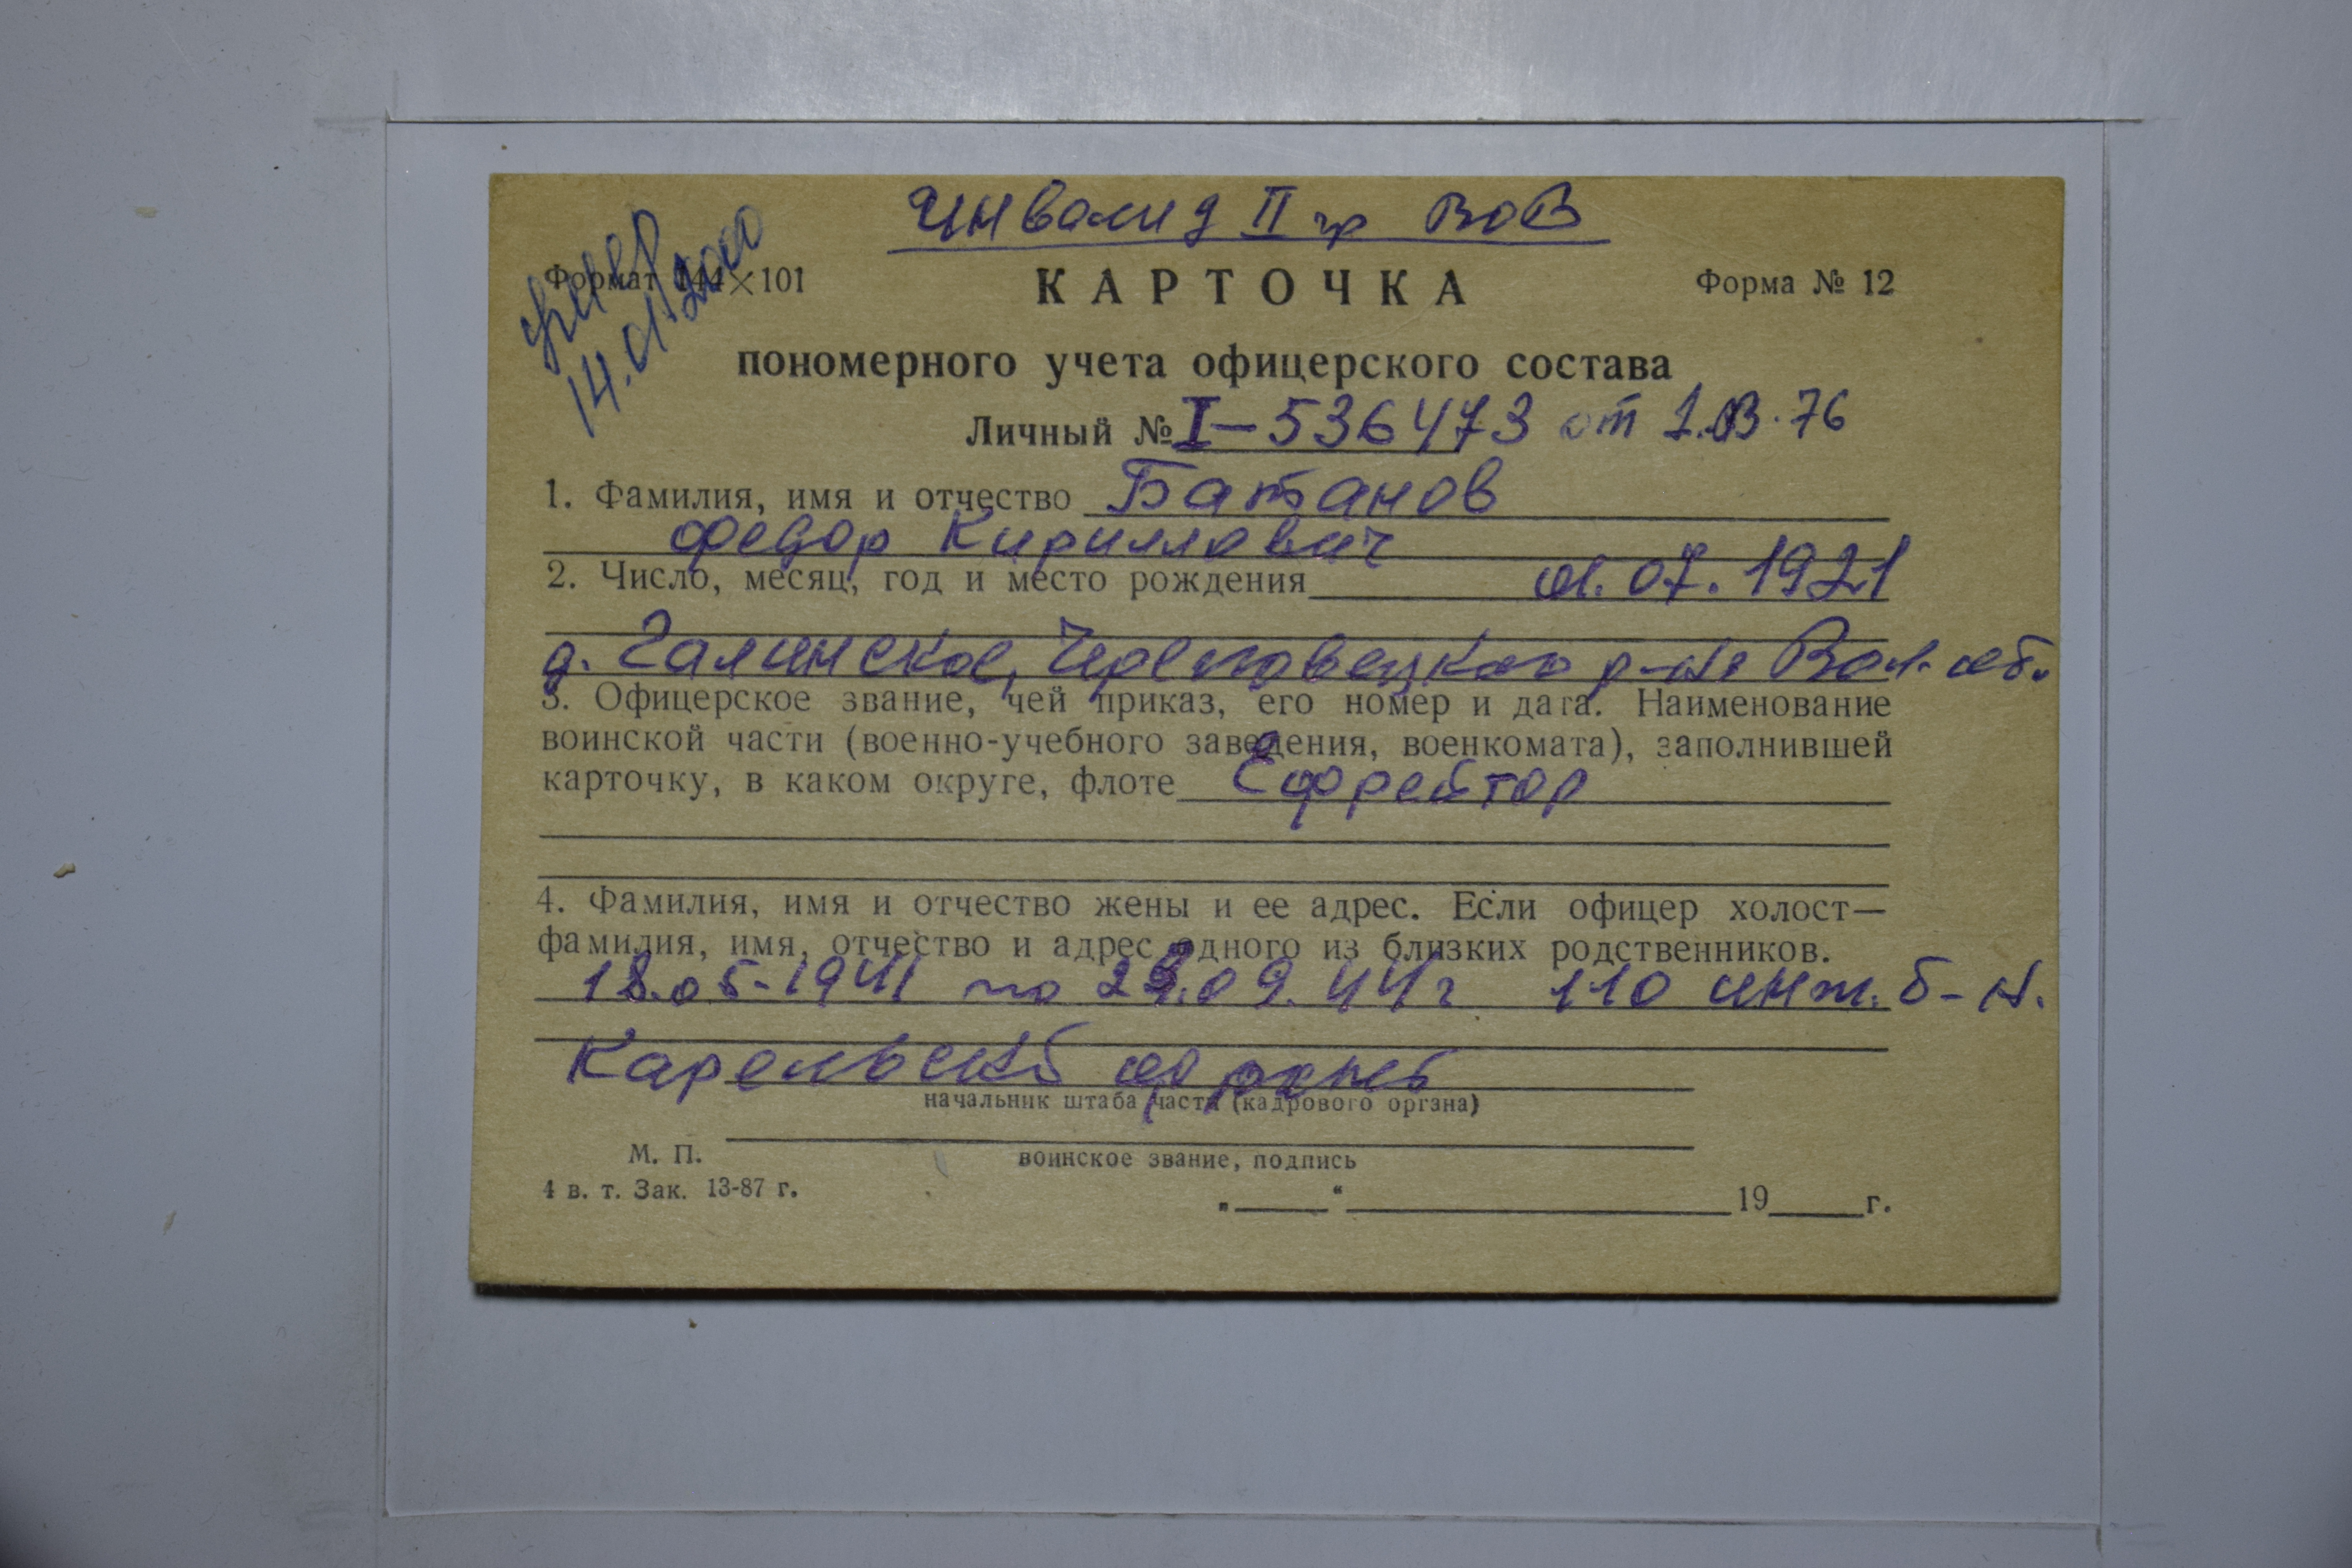 Инвалид II гр ВОВ
умер
14.01.2000
Формат 144×101
КАРТОЧКА
Форма № 12
пономерного учета офицерского состава
Личный № I-536473 от 1.03.76
1. Фамилия, имя и отчество Батанов
Федор Кириллович
2. Число, месяц, год и место рождения 01.07.1921
д. Галинское, Череповецкого р-на Вол. об.
3. Офицерское звание, чей приказ, его номер и дата. Наименование
воинской части (военно-учебного заведения, военкомата), заполнившей
карточку, в каком округе, флоте Ефрейтор
4. Фамилия, имя и отчество жены и ее адрес. Если офицер холост—
фамилия, имя, отчество и адрес одного из близких родственников.
18.05.1941 по 29.09.44г 110 инж. б-н.
Карельский фронт
начальник штаба части (кадрового органа)
М. П.
воинское звание, подпись
4 в. т. Зак. 13-87 г.
„ “ 19 г.